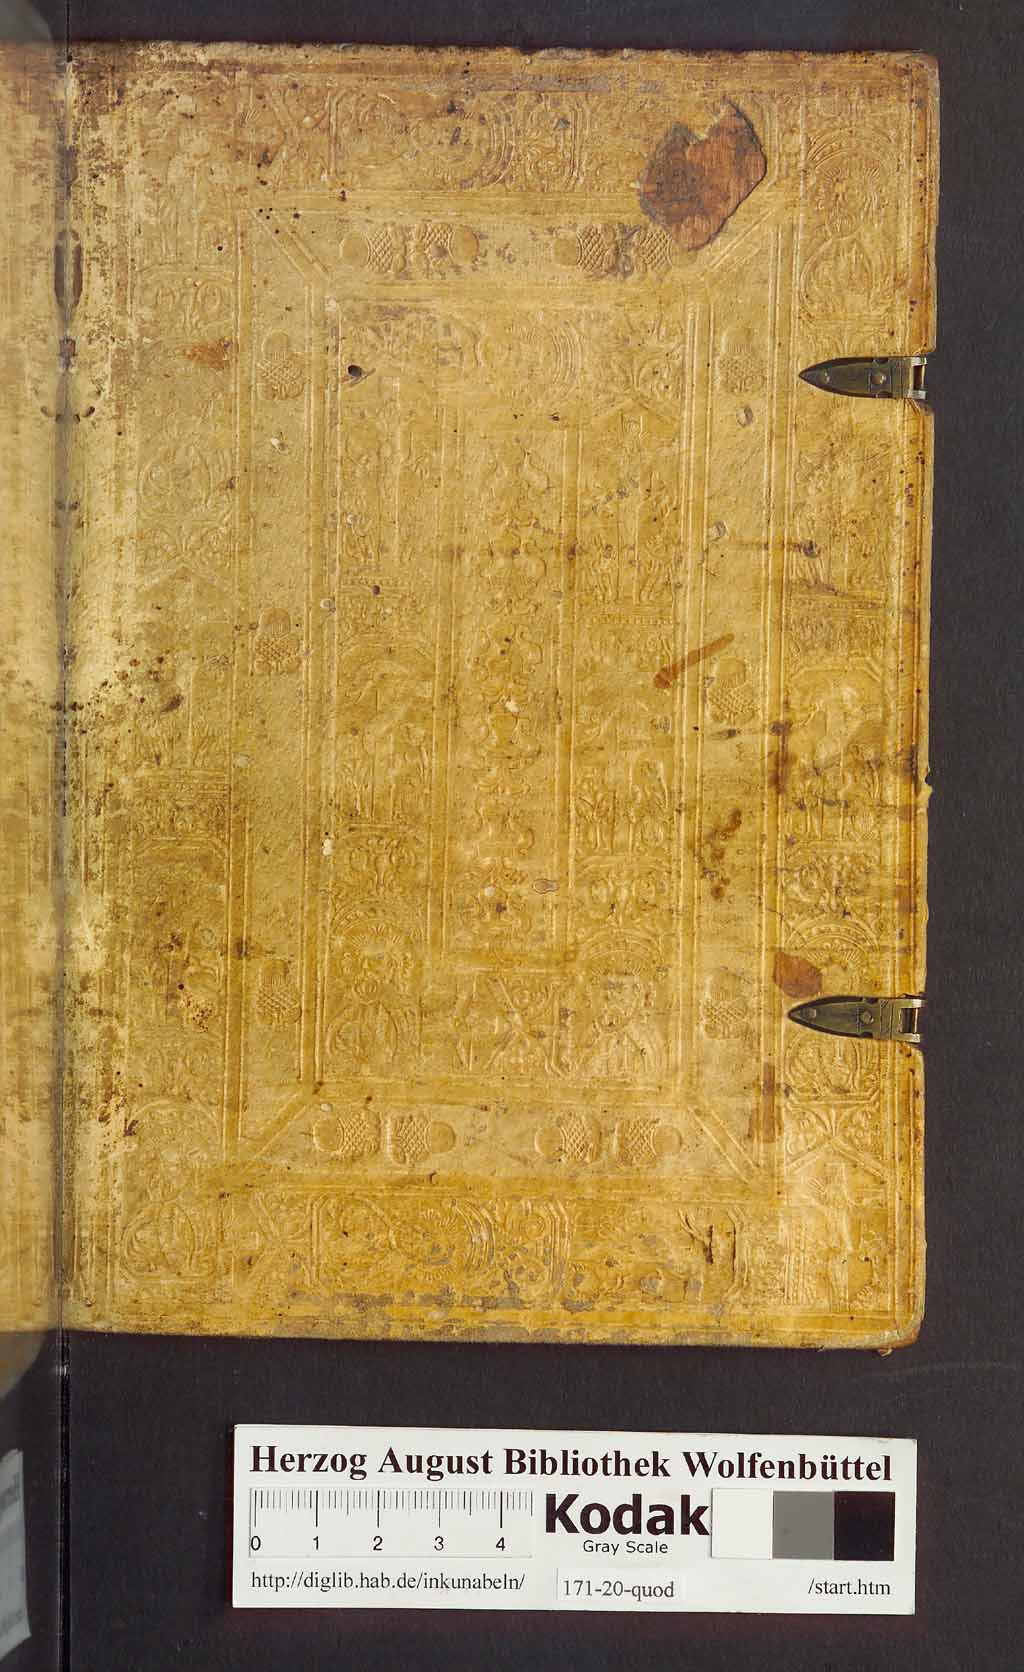 Herzog August Bibliothek Wolfenbüttel
0 1 2 3 4
Kodak
Gray Scale
http://diglib.hab.de/inkunabeln/ 171-20-quod /start.htm